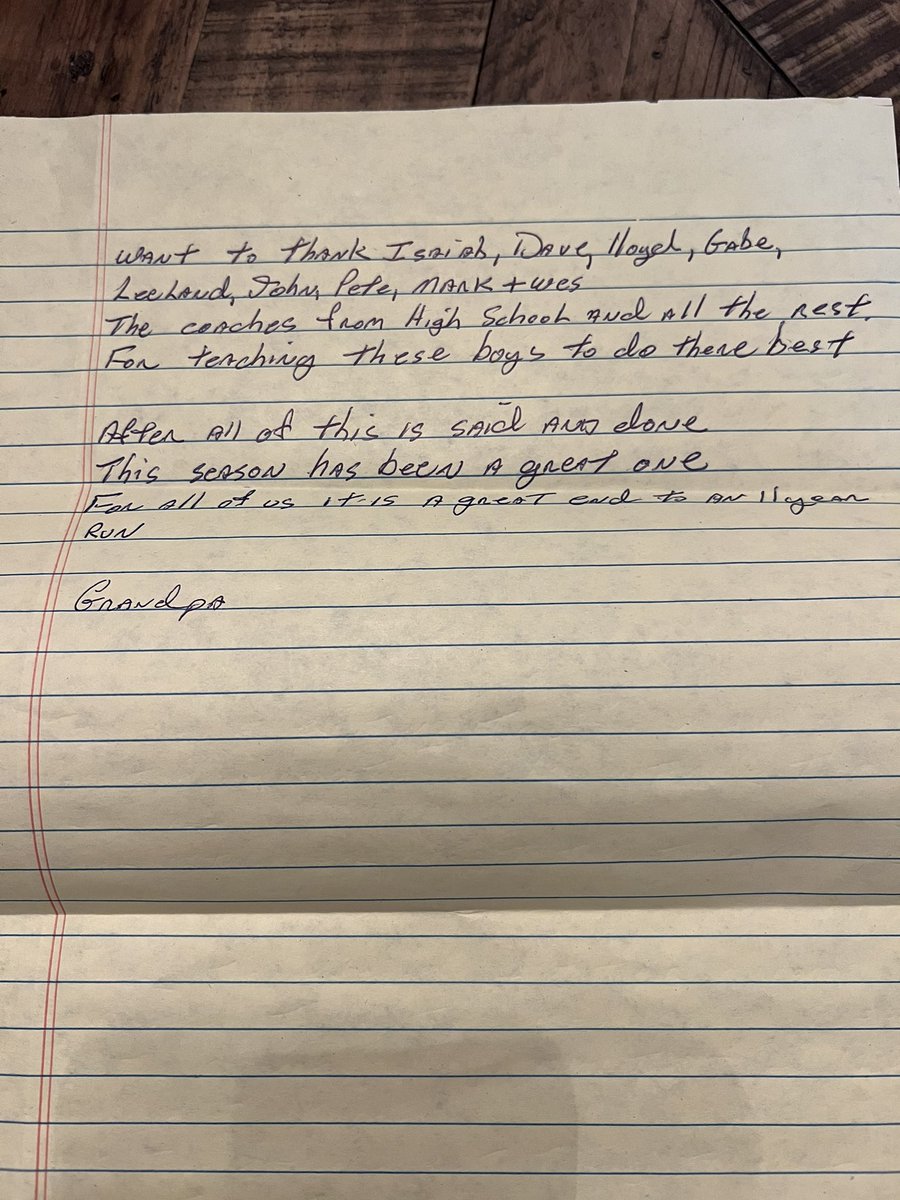 WANT to thank Isaiah, Dave, lloyd, Gabe,
LeeLand, John, Pete, MARK + wes
The coaches from High School and all the rest.
For teaching these boys to do there best
After all of this is said AND done
This season has been a great one
For all of us it is a great end to an 11 year
RUN
Grandpa